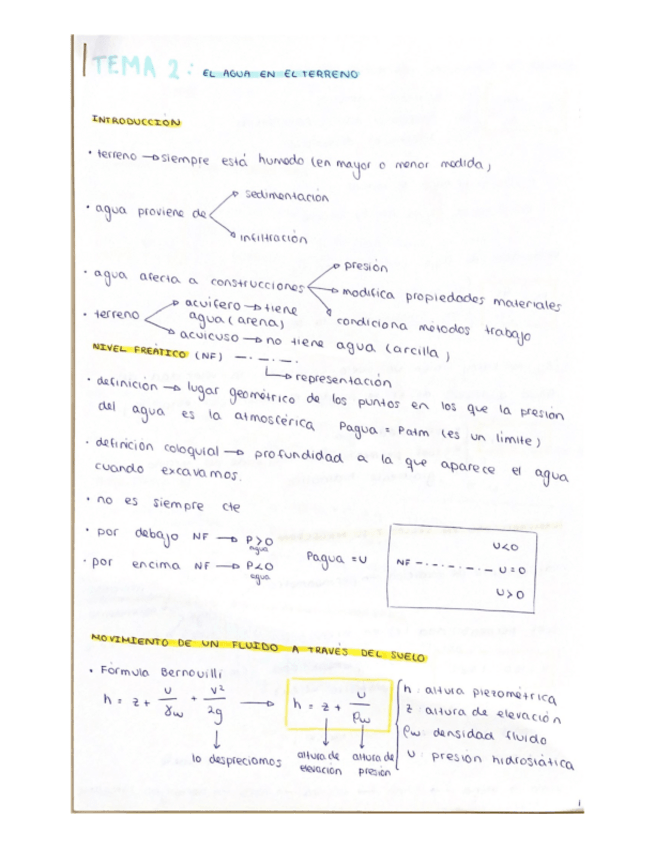 TEMA 2: EL AGUA EN EL TERRENO
INTRODUCCIÓN
· terreno → siempre está humedo (en mayor o menor medida)
sedimentación
· agua proviene de
infiltración
presión
· agua afecta a construcciones → modifica propiedades materiales
condiciona metodos trabajo
· terreno
acuífero → tiene agua (arena)
acuicuso → no tiene agua (arcilla)
NIVEL FREÁTICO (NF) —·—·—·
representación
· definición → lugar geométrico de los puntos en los que la presión
del agua es la atmosférica Pagua = Patm (es un límite)
· definición coloquial → profundidad a la que aparece el agua
cuando excavamos.
· no es siempre cte
· por debajo NF → P>0
agua
· por encima NF → P<0
agua
Pagua = U
U<0
NF —·—·—·— U=0
U>0
MOVIMIENTO DE UN FLUIDO A TRAVÉS DEL SUELO
· Fórmula Bernouilli
h = z + U/γw + v²/2g → h = z + U/ρw
lo despreciamos
altura de elevación
altura de presión
h: altura piezométrica
z: altura de elevación
ρw: densidad fluido
U: presión hidrostática
1